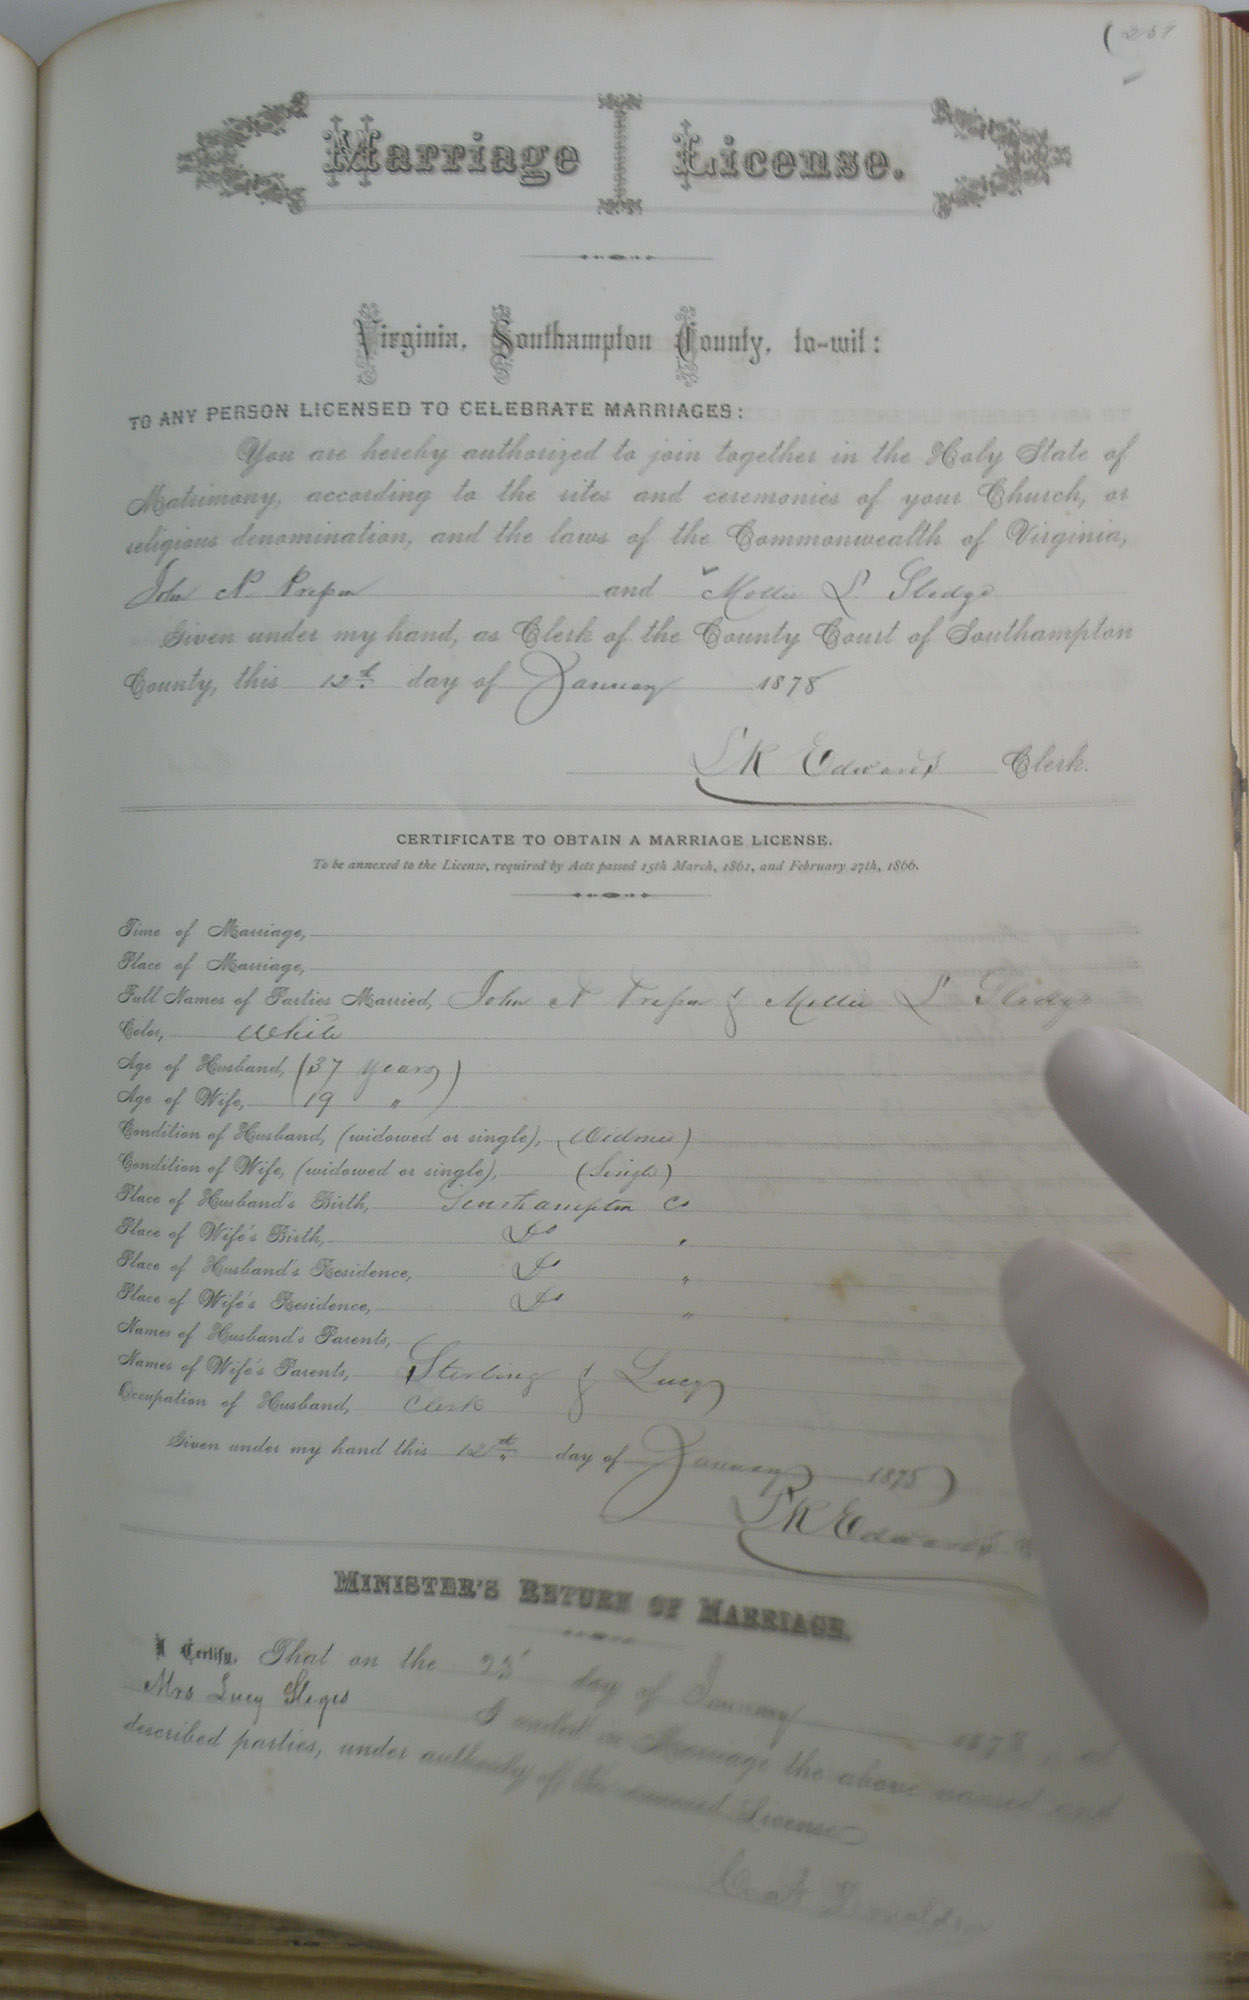 Marriage License.
Virginia, Southampton County, to-wit:
TO ANY PERSON LICENSED TO CELEBRATE MARRIAGES:
You are hereby authorized to join together in the Holy State of
Matrimony, according to the rites and ceremonies of your Church, or
religious denomination, and the laws of the Commonwealth of Virginia,
John and Mollie L Sledge
Given under my hand, as Clerk of the County Court of Southampton
County, this 12th day of January 1878
L R Edwards Clerk.
CERTIFICATE TO OBTAIN A MARRIAGE LICENSE.
To be annexed to the License, required by Acts passed 15th March, 1861, and February 27th, 1866.
Time of Marriage,
Place of Marriage,
Full Names of Parties Married, John & Mollie L Sledge
Color, White
Age of Husband, (37 years)
Age of Wife, 19 "
Condition of Husband, (widowed or single), (Widowed)
Condition of Wife, (widowed or single), (Single)
Place of Husband's Birth, Southampton Co
Place of Wife's Birth, Do "
Place of Husband's Residence, Do "
Place of Wife's Residence, Do "
Names of Husband's Parents,
Names of Wife's Parents, Sterling & Lucy
Occupation of Husband, Clerk
Given under my hand this 12th day of January 1878
L R Edwards
MINISTER'S RETURN OF MARRIAGE.
I Certify, That on the day of January 1878, at
Mrs Lucy I united in Marriage the above named and
described parties, under authority of the annexed License